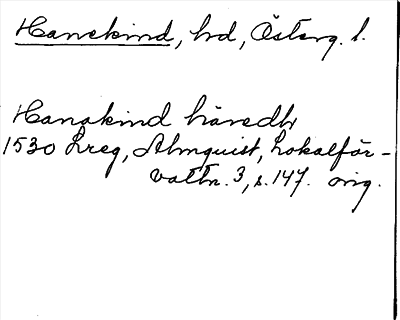 Hanekind, hd, Österg. l.
Hanakind häredh
1530 Lreg, Almquist, Lokalför-
valtn. 3, s. 147. orig.